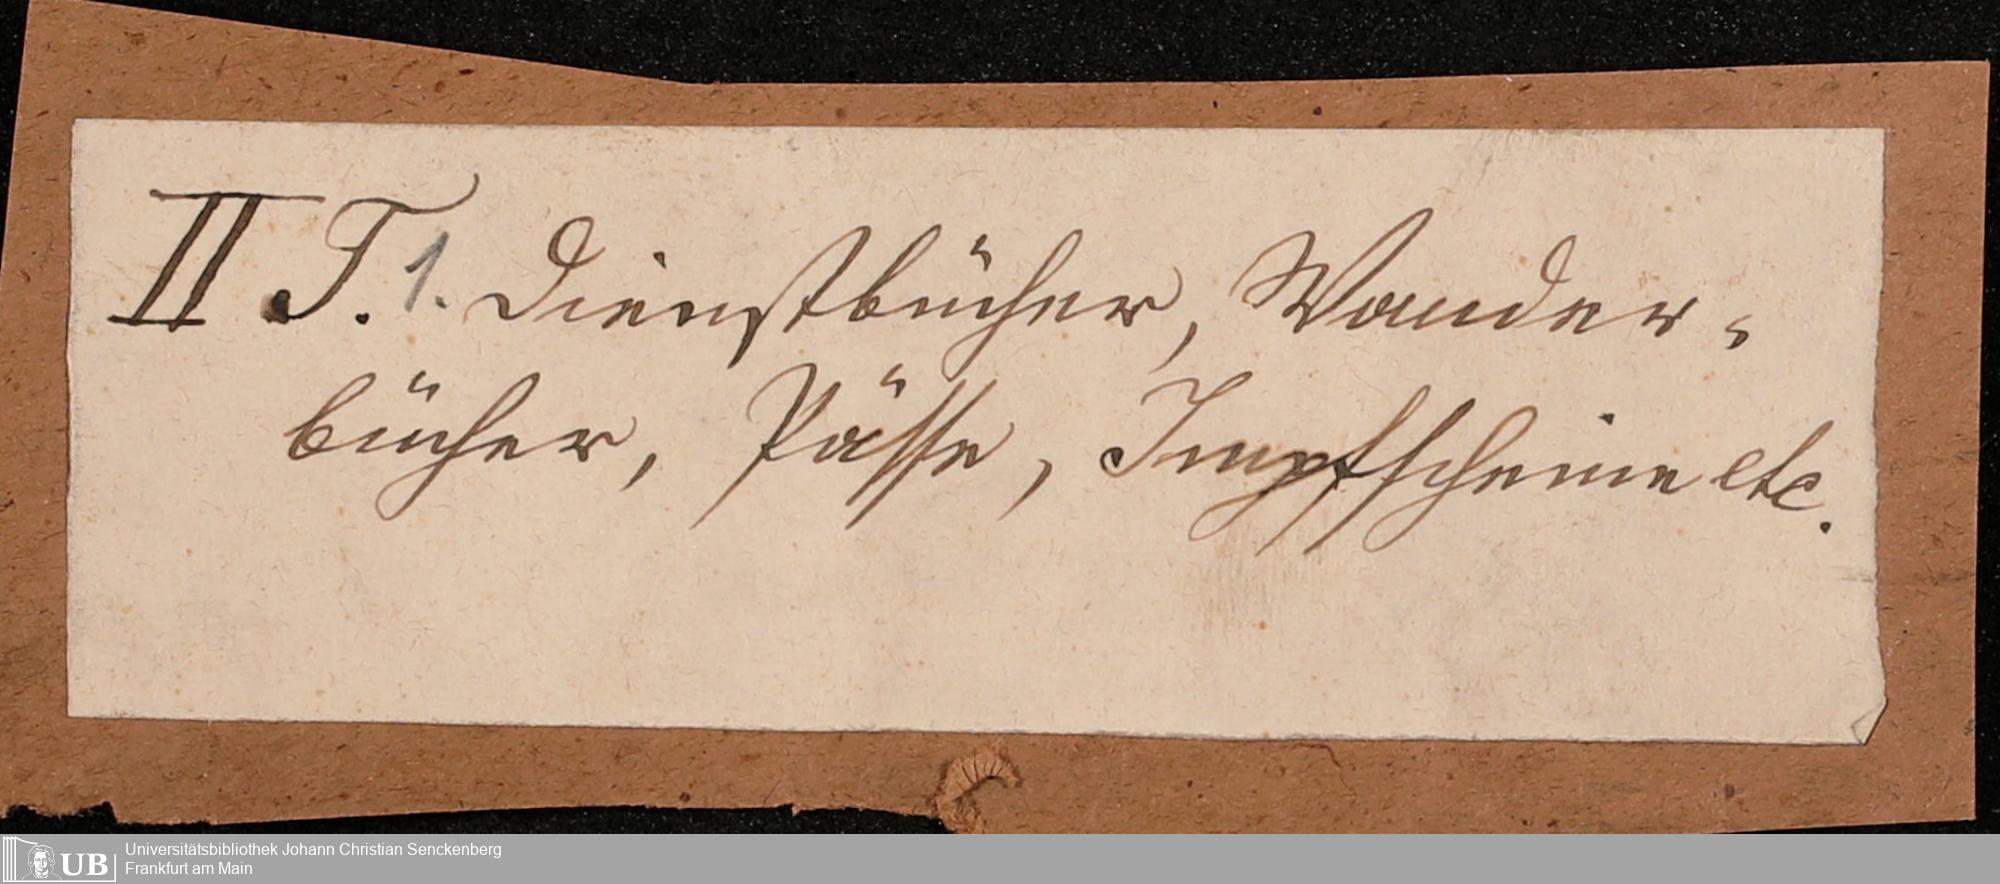 II T. 1. Dienstbücher, Wander-
bücher, Pässe, Impfscheine etc.
UB
Universitätsbibliothek Johann Christian Senckenberg
Frankfurt am Main